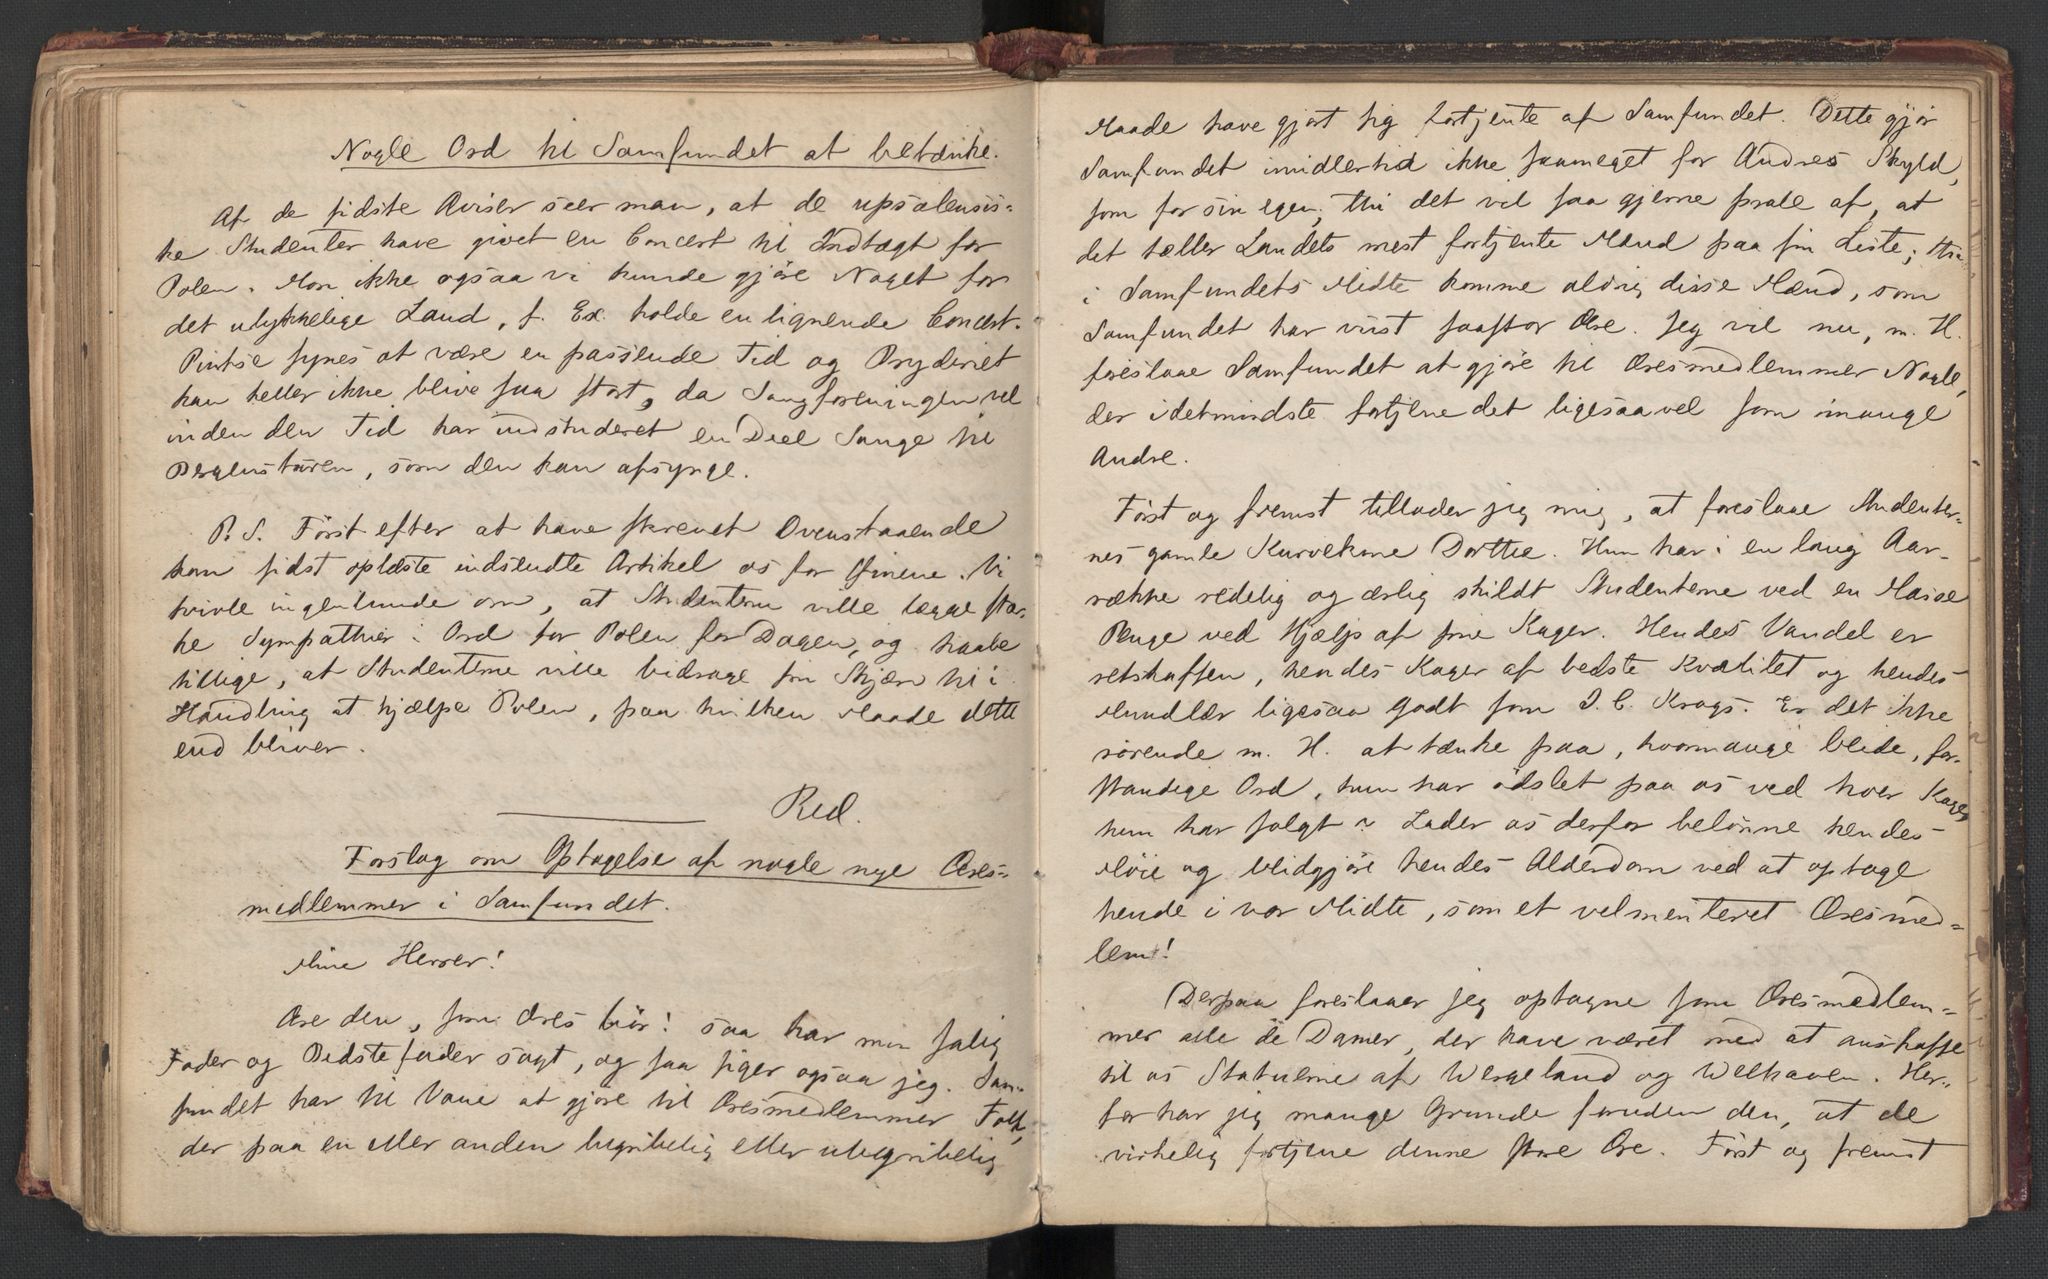 Nogle Ord til Samfundet at betænke.
Af de sidste Aviser seer man, at de upsalensis=
ke Studenter have givet en Concert til Indtægt for
Polen. Mon ikke ogsaa vi kunde gjöre Noget for
det ulykkelige Land, f. Ex. holde en lignende Concert.
Pintse synes at være en passende Tid og Bryderiet
kan heller ikke blive saa stort, da Sangforeningen vel
inden den Tid har indstuderet en Deel Sange til
Bergensturen, som den kan afsynge.
P. S. Först efter at have skrevet Ovenstaaende
kom sidst oplæste indsendte Artikel os for Öinene. Vi
tvivle ingenlunde om, at Studenterne ville lægge stær=
ke Sympathier i Ord for Polen for Dagen, og haabe
tillige, at Studenterne ville bidrage sin Skjærv til i
Handling at hjælpe Polen, paa hvilken Maade dette
end bliver.
Red.
Forslag om Optagelse af nogle nye Æres=
medlemmer i Samfundet.
Mine Herrer!
Ære den, som Æres bör! saa har min salig
Fader og Bedstefader sagt, og saa siger ogsaa jeg. Sam=
fundet har til Vane at gjöre til Æresmedlemmer Folk,
der paa en eller anden begribelig eller ubegribelig
Maade have gjort sig fortjente af Samfundet. Dette gjör
Samfundet imidlertid ikke saameget for Andres Skyld,
som for sin egen; thi det vil saa gjerne prale af, at
det tæller Landets mest fortjente Mænd paa sin Liste; thi
i Samfundets Midte komme aldrig disse Mænd, som
Samfundet har viist saastor Ære. Jeg vil nu, m. H.
foreslaae Samfundet at gjöre til Æresmedlemmer Nogle,
der idetmindste fortjene det ligesaavel som mange
Andre.
Först og fremst tillader jeg mig, at foreslaae Studenter=
nes gamle Kurvekone Dorthe. Hun har i en lang Aar=
række redelig og ærlig skildt Studenterne ved en Masse
Penge ved Hjælp af sine Kager. Hendes Vandel er
retskaffen, hendes Kager af bedste Kvalitet og hendes
Mundlær ligesaa godt som J. C. Krogs. Er det ikke
rörende m. H. at tænke paa, hvormange blide, for=
standige Ord, hun har ödslet paa os ved hver Kage,
hun har solgt? Lader os derfor belönne hendes
Möie og blidgjöre hendes Alderdom ved at optage
hende i vor Midte, som et velmenteret Æresmed=
lem!
Derpaa foreslaaer jeg optagne som Æresmedlem=
mer alle de Damer, der have været med at anskaffe
til os Statuerne af Wergeland og Welhaven. Her=
for har jeg mange Grunde foruden den, at de
virkelig fortjene denne store Ære. Först og fremst